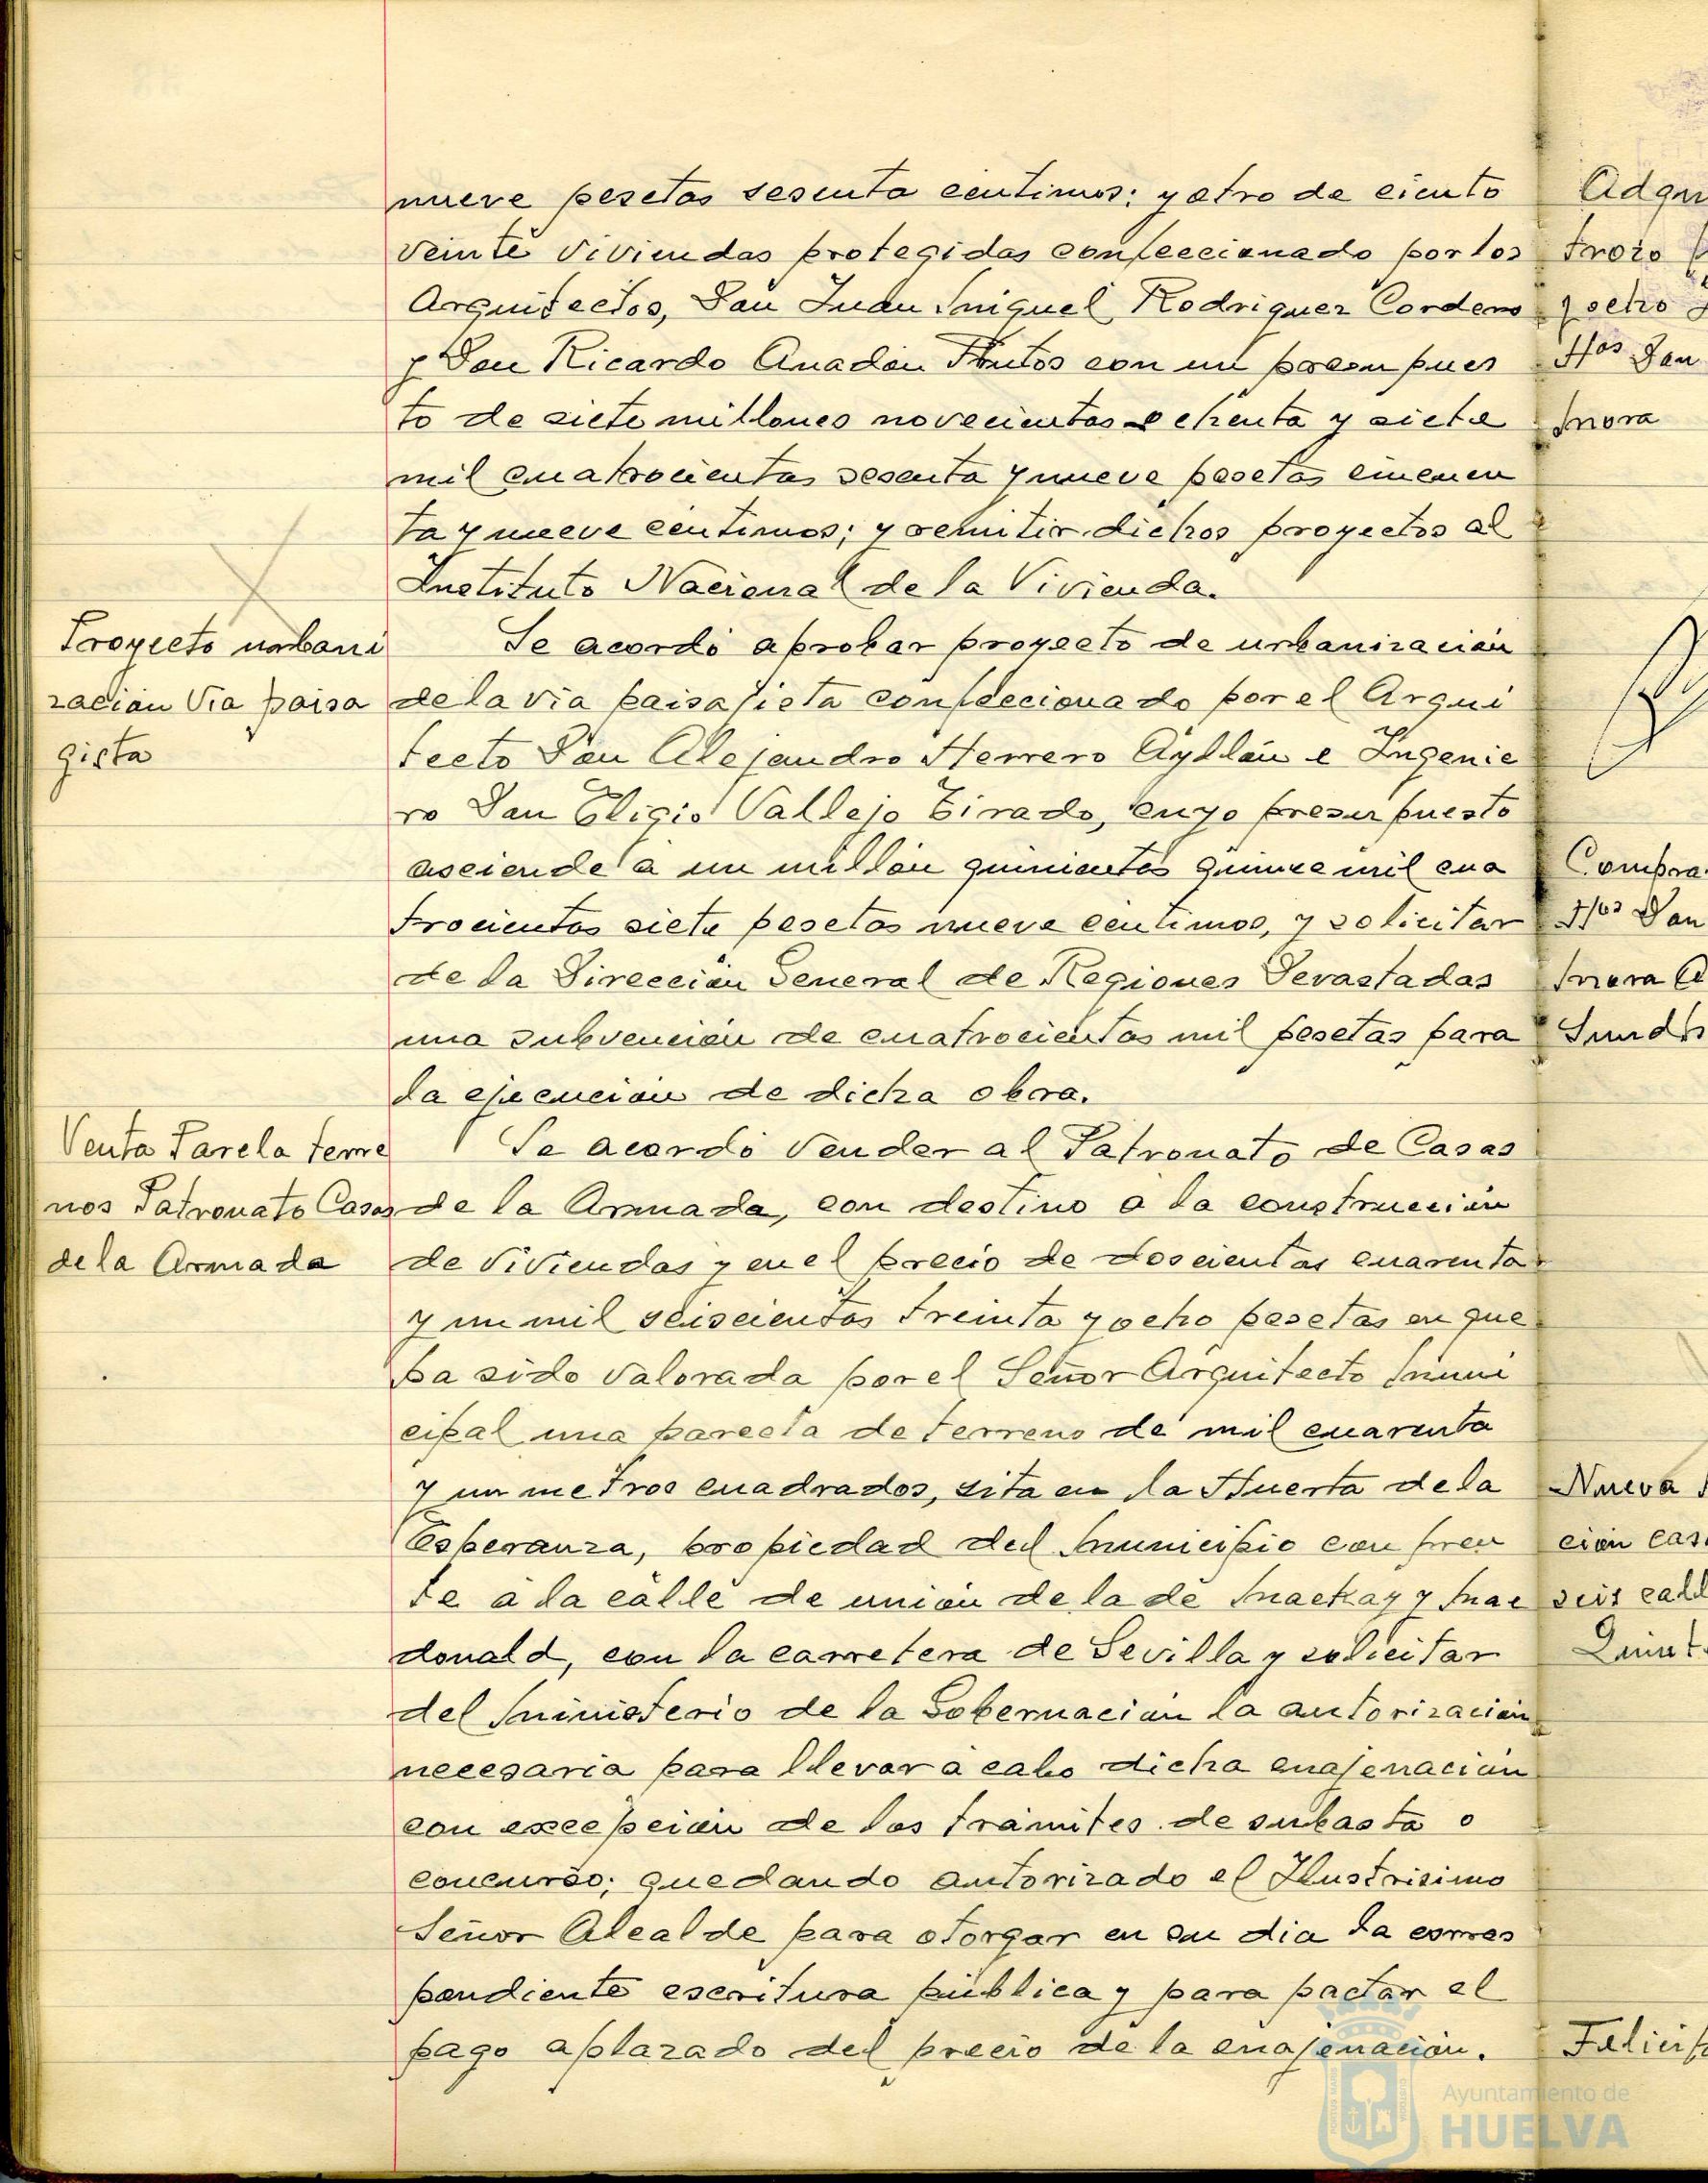 nueve pesetas sesenta centimos; y otro de ciento
veinte viviendas protegidas confeccionado por los
Arquitectos, Don Juan Miguel Rodriguez Cordero
y Don Ricardo Anadón Frutos con un presupues
to de siete millones novecientas ochenta y siete
mil cuatrocientas sesenta y nueve pesetas cincuen
ta y nueve centimos; y remitir dichos proyectos al
Instituto Nacional de la Vivienda.
Proyecto urbani
zación Via paisa
gista
Se acordó aprobar proyecto de urbanización
de la via paisajista confeccionado por el Arqui
tecto Don Alejandro Herrero Ayllón e Ingenie
ro Don Eligio Vallejo Tirado, cuyo presupuesto
asciende a un millón quinientas quince mil cua
trocientas siete pesetas nueve centimos, y solicitar
de la Dirección General de Regiones Devastadas
una subvención de cuatrocientas mil pesetas para
la ejecución de dicha obra.
Venta Parcela terre
nos Patronato Casas
de la Armada
Se acordó vender al Patronato de Casas
de la Armada, con destino a la construcción
de viviendas y en el precio de doscientas cuarenta
y un mil seiscientas treinta y ocho pesetas en que
ha sido valorada por el Señor Arquitecto Muni
cipal una parcela de terreno de mil cuarenta
y un metros cuadrados, sita en la Huerta de la
Esperanza, propiedad del Municipio con fren
te a la calle de unión de la de Mackay y Mac
donald, con la carretera de Sevilla y solicitar
del Ministerio de la Gobernación la autorización
necesaria para llevar a cabo dicha enajenación
con excepción de los trámites de subasta o
concurso; quedando autorizado el Ilustrisimo
Señor Alcalde para otorgar en su dia la corres
pondiente escritura pública y para pactar el
pago aplazado del precio de la enajenación.
trozo
y ocho
Hos Don
Mora
Compra
Hos Don
Mora
Nueva
ción
seis
Ayuntamiento de
HUELVA